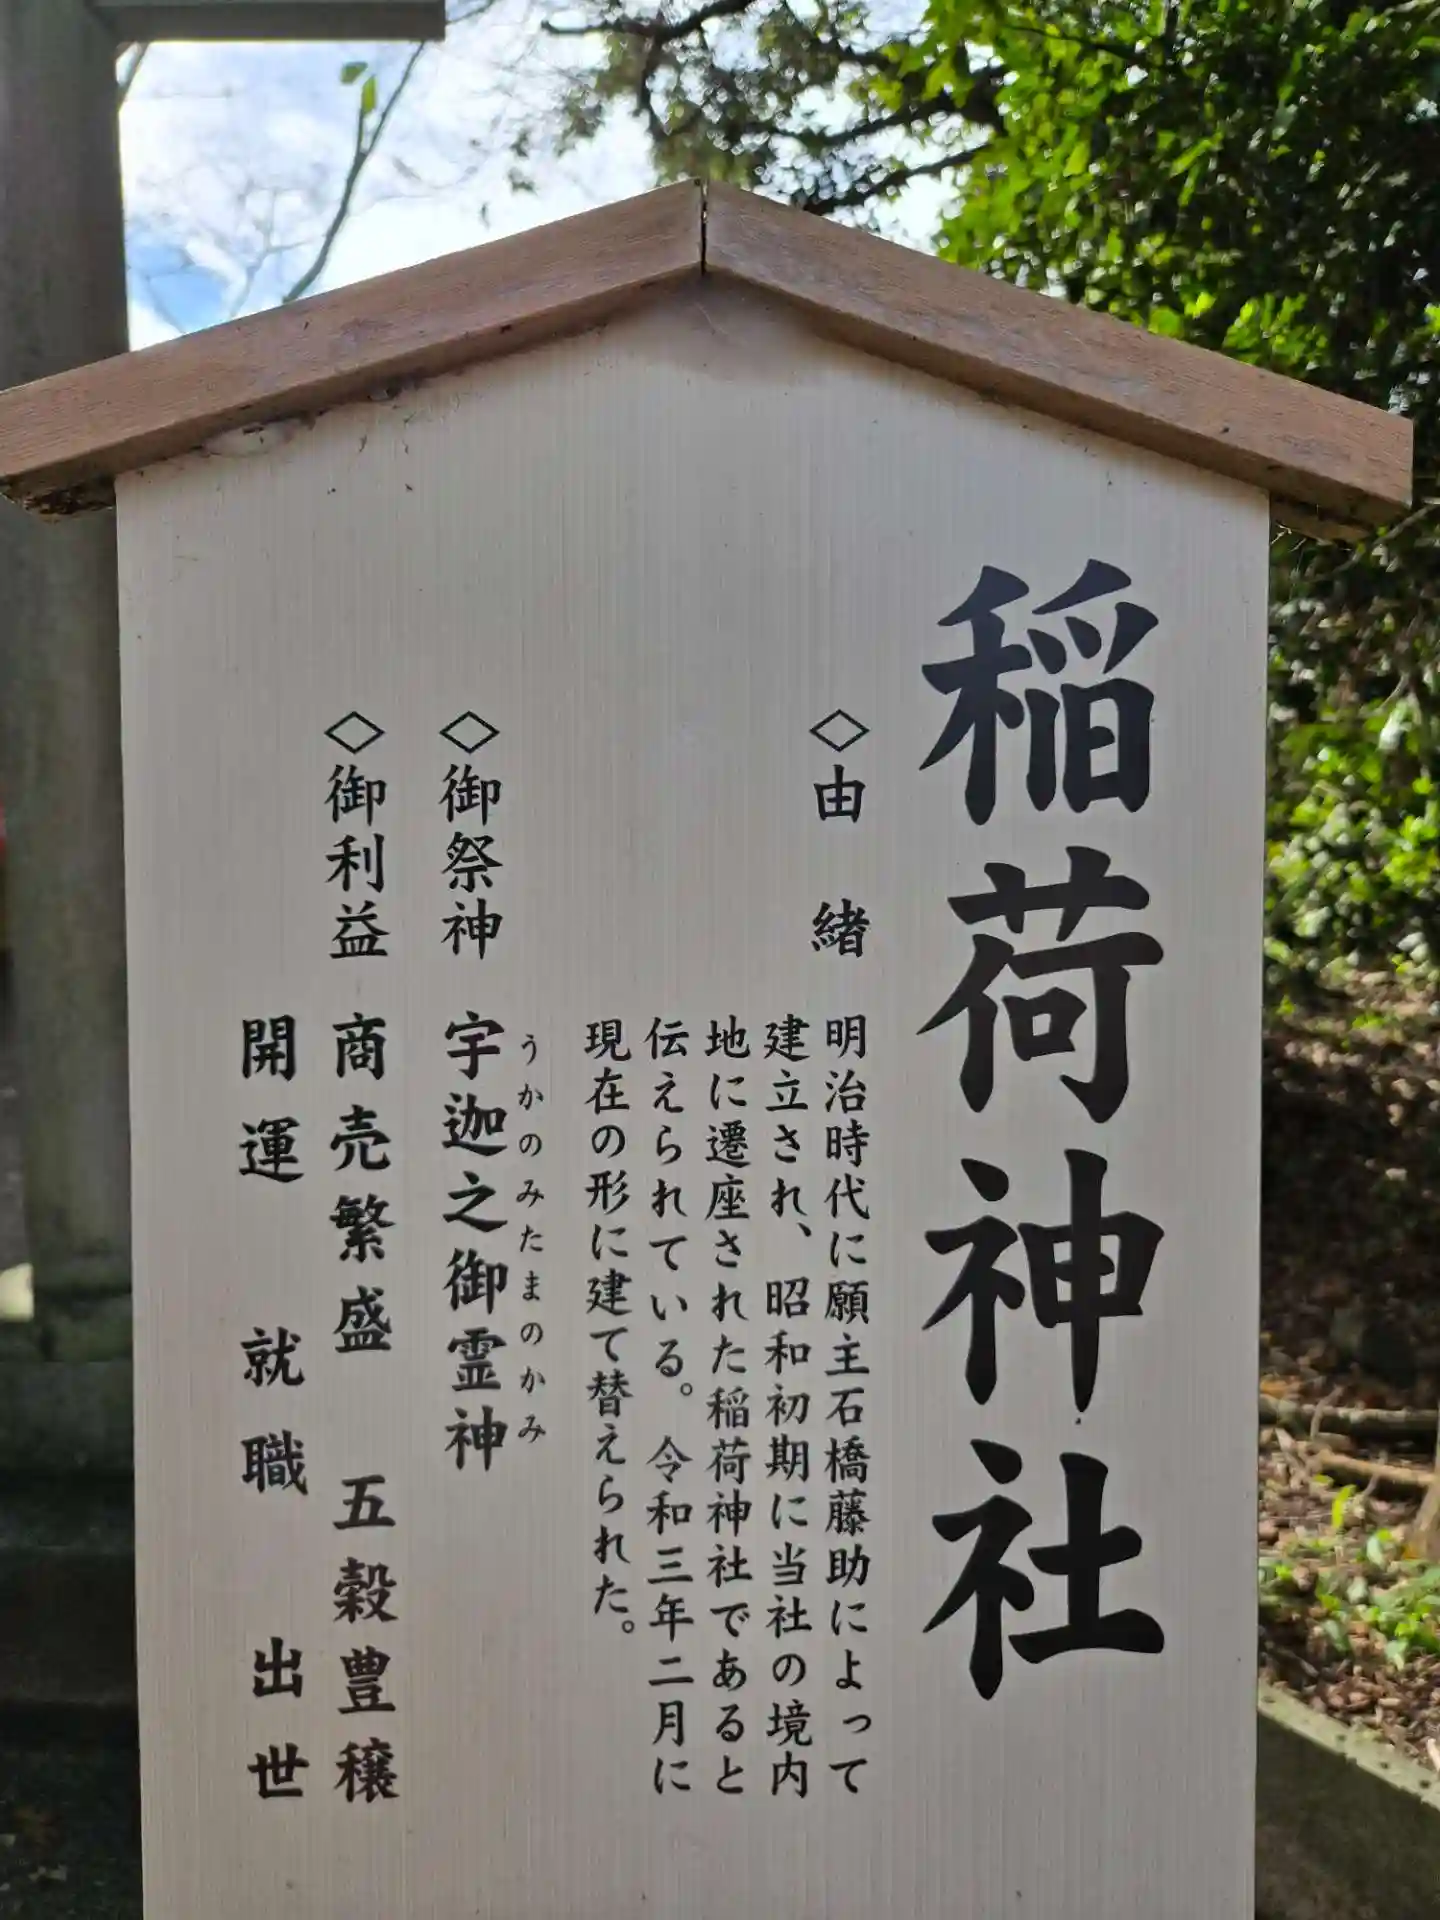 稲荷神社
◇由緒
明治時代に願主石橋藤助によって
建立され、昭和初期に当社の境内
地に遷座された稲荷神社であると
伝えられている。令和三年二月に
現在の形に建て替えられた。
◇御祭神 宇迦之御霊神
うかのみたまのかみ
◇御利益 商売繁盛 五穀豊穣
開運 就職 出世